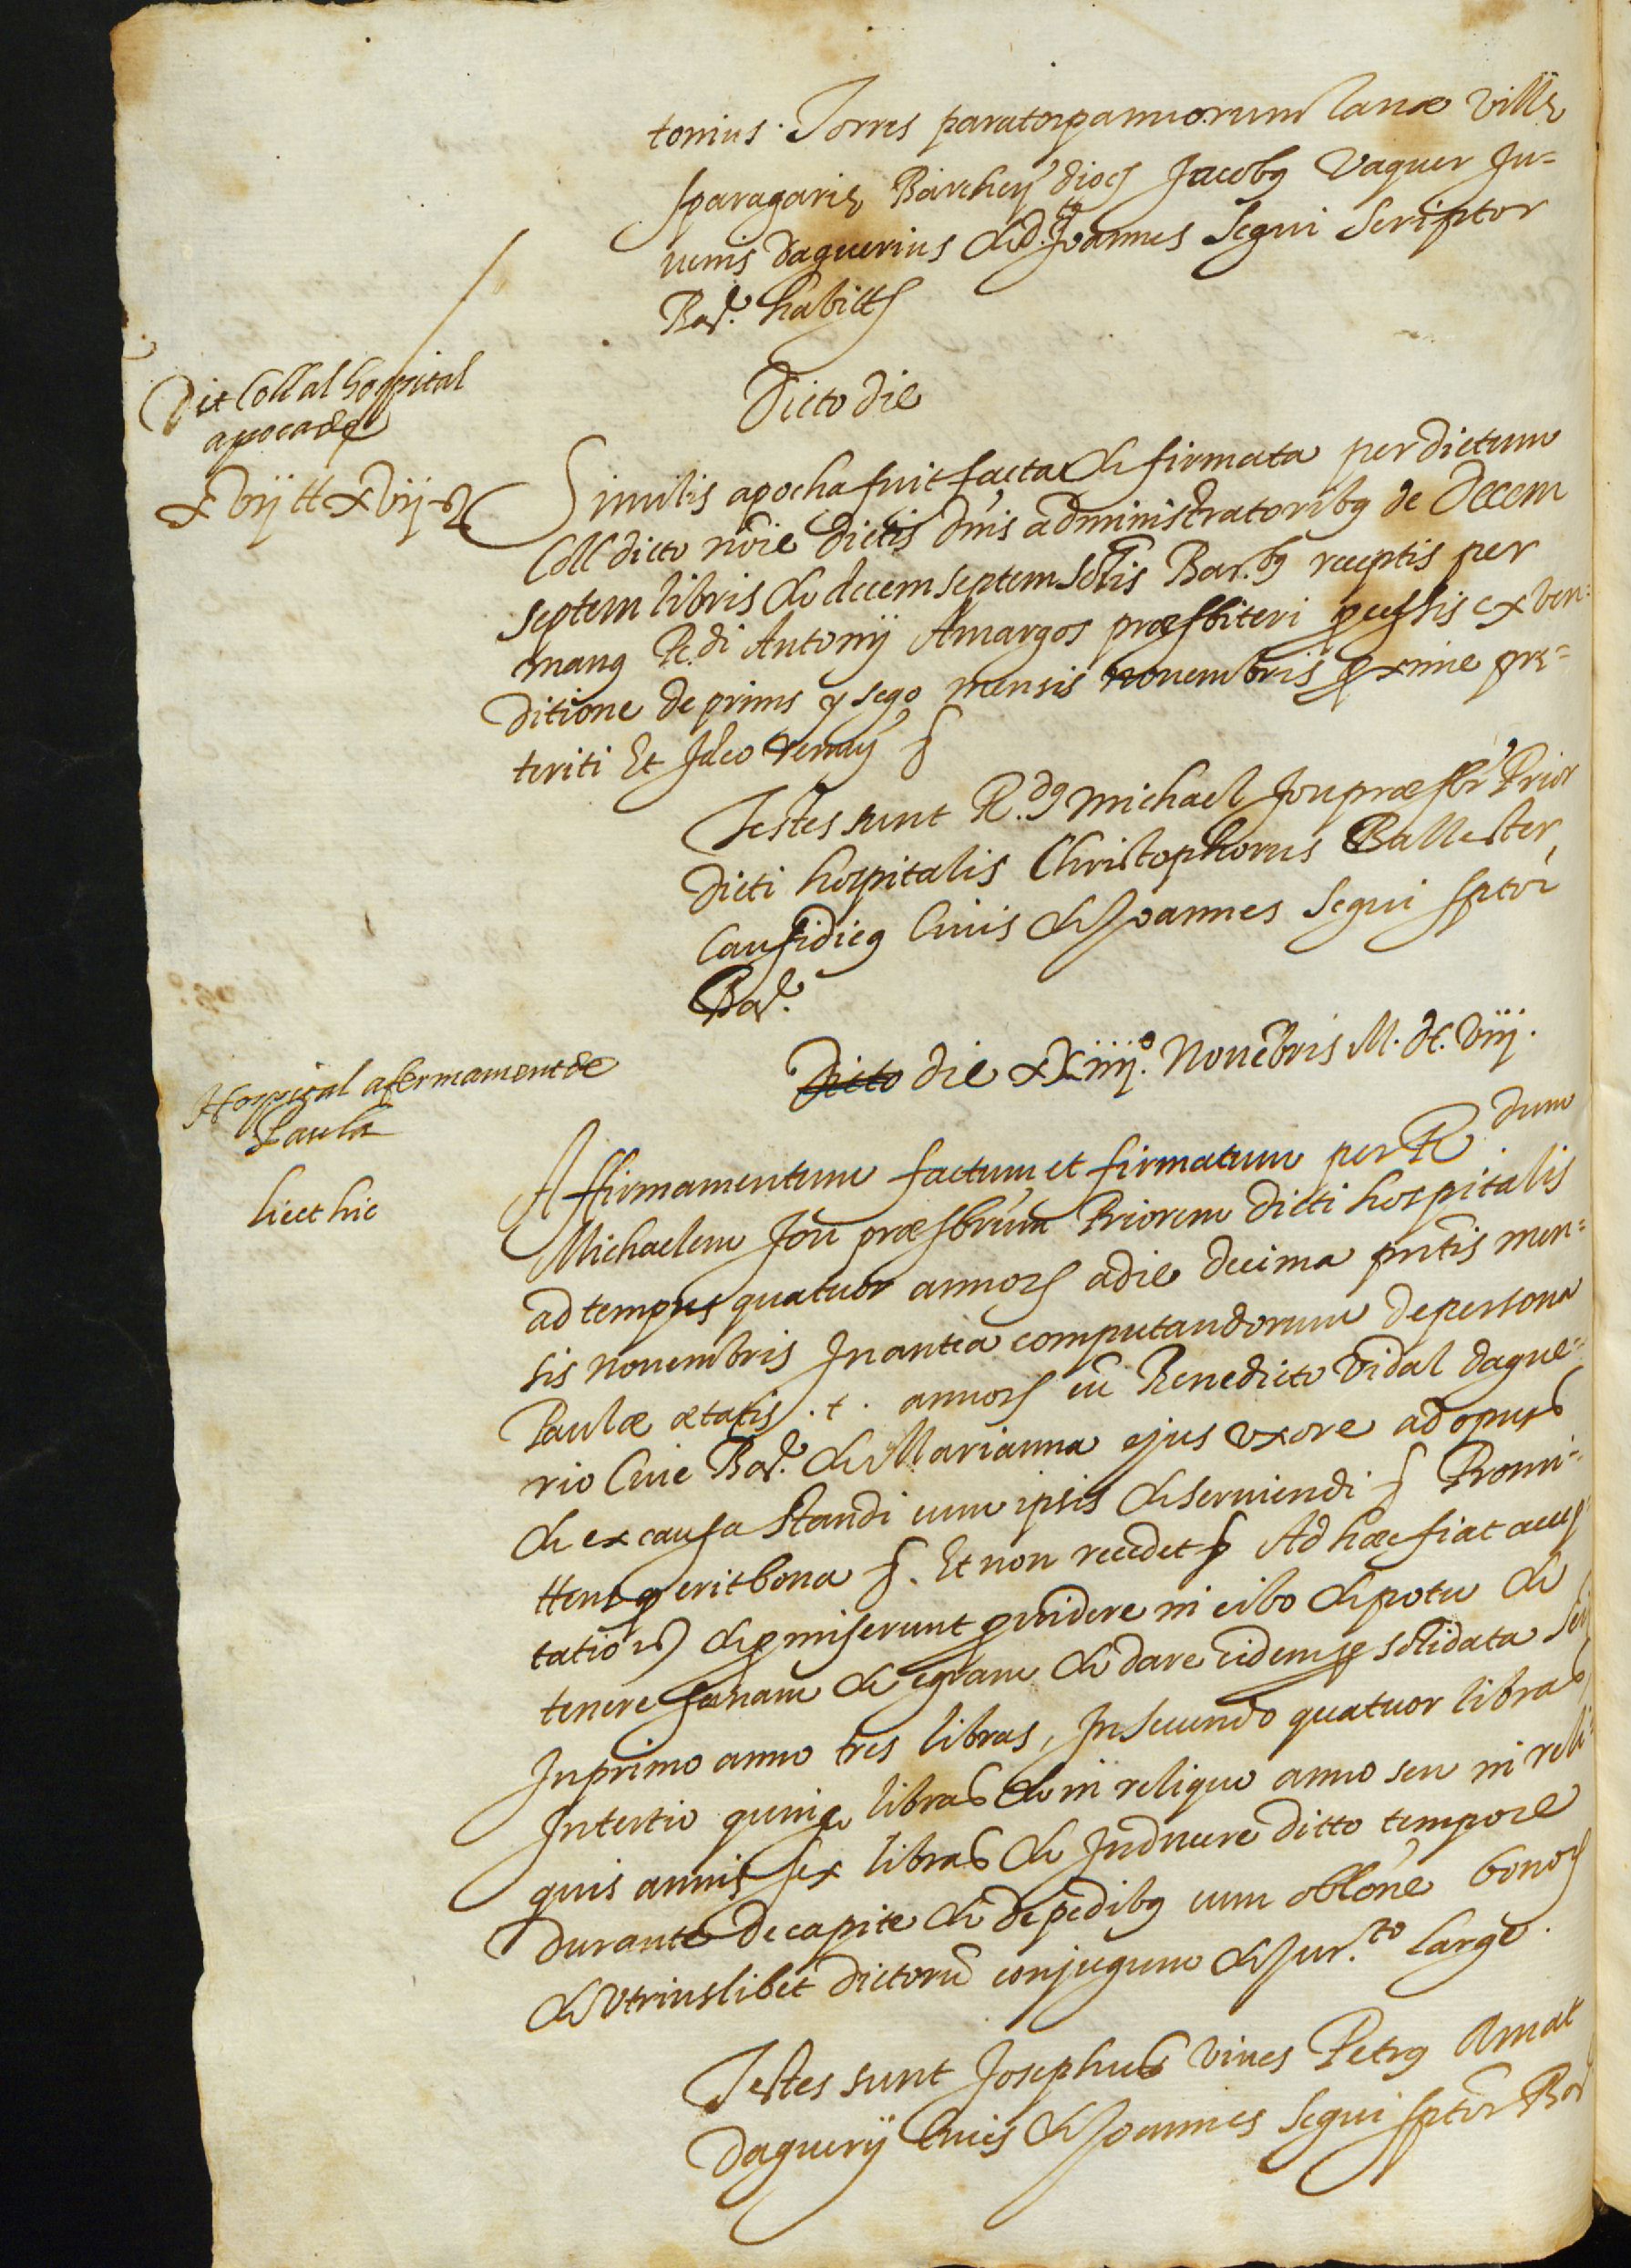 tonius Torres parator pannorum lanæ villę
sparagarię Barchen̄ dioc̄ Jacobꝯ vaquer Ju=
uenis daguerius & d.ꝯ Joannes Segui Scriptor
Bar.e habitt̄
Dit Coll al hospital
apoca de
xvij ll xvij s
Dicto die
Similis apocha fuit facta & firmata per dictum
Coll dicto nōie dictis dn̄is administratoribꝯ de decem
septem libris & decem septem sol̄is Bar.bꝯ receptis per
manꝯ R.di Antonij Amargos præsbiteri ꝓcessis ex ven=
ditione de prims y sego mensis nouembris ꝓxime prę=
teriti Et Ideo renun̄
Testes sunt R.dꝯ Michael Jou præsbr̄ Prior
dicti hospitalis Christophorus Ballester
Causidicꝯ Ciuis & Joannes Segui sptor̄
Bar.e
Dicto die xxiiij.o Nouēbris M. dc. viij.
Hospital afermament de
Paula
licet hic
Affirmamentum factum et firmatum per R.dum
Michaelem Jou præsbrūm Priorem dicti hospitalis
ad tempus quatuor annoꝝ a die decima pn̄tis men=
sis nouembris Inantea computandorum de persona
Paulæ ætatis .t. annoꝝ cū Benedicto Vidal dague=
rio Ciue Bar.e & Marianna ejus vxore ad opus
& ex causa standi cum ipsis & seruiendi Promi=
ttens ꝙ erit bona Et non recedet Ad hæc fiat accep
tatio & ꝓmiserunt ꝓuidere in cibo & potu &
tenere sanam & egram & dare eidem ꝓ solidata
In primo anno tres libras, In secundo quatuor libras
In tertio quinque libras & in reliquo anno seu in reli=
quis annis sex libras & Inducere ditto tempore
durante de capite & de pedibꝯ cum oblōne bonoꝝ
& vtriuslibet dictorū conjugum & Jur.to large.
Testes sunt Josephus viues Petrꝯ Amat
daguerij Ciues & Joannes Segui sptor̄ Bar